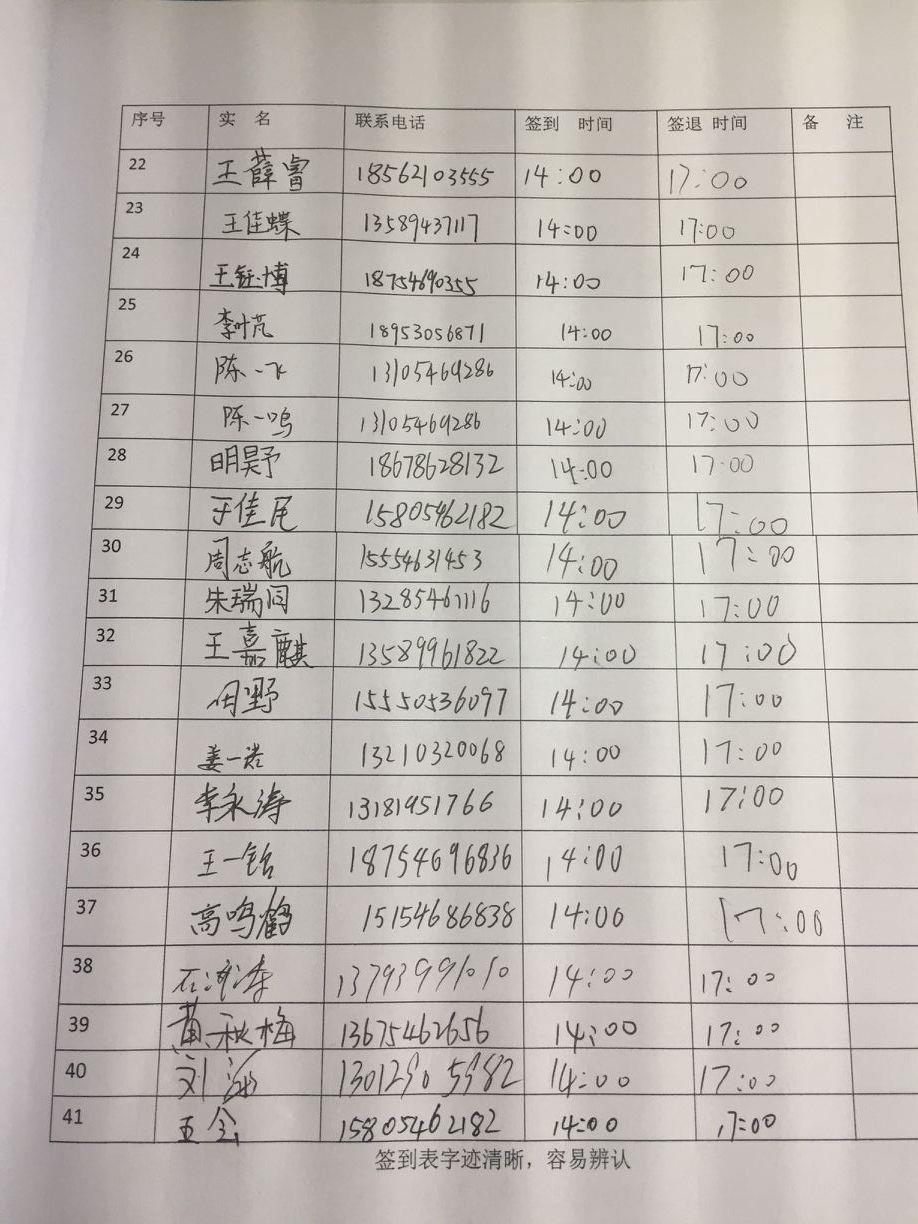 序号 实 名 联系电话 签到 时间 签退 时间 备 注
22 王薛富 18562103555 14:00 17:00
23 王佳蝶 13589437117 14:00 17:00
24 王钰博 18754690355 14:00 17:00
25 李叶芃 18953056871 14:00 17:00
26 陈一飞 13105469286 14:00 17:00
27 陈一鸣 13105469286 14:00 17:00
28 明昊予 18678628132 14:00 17:00
29 于佳尾 15805462182 14:00 17:00
30 周志航 15554631453 14:00 17:00
31 朱瑞闫 13285461116 14:00 17:00
32 王嘉麒 13589961822 14:00 17:00
33 田野 15550536097 14:00 17:00
34 姜一诺 13210320068 14:00 17:00
35 李永涛 13181951766 14:00 17:00
36 王一铭 18754696836 14:00 17:00
37 高鸣鹤 15154686838 14:00 17:00
38 石 涛 13793991010 14:00 17:00
39 黄秋梅 13675462656 14:00 17:00
40 刘 13012905982 14:00 17:00
41 15805462182 14:00 17:00
签到表字迹清晰，容易辨认